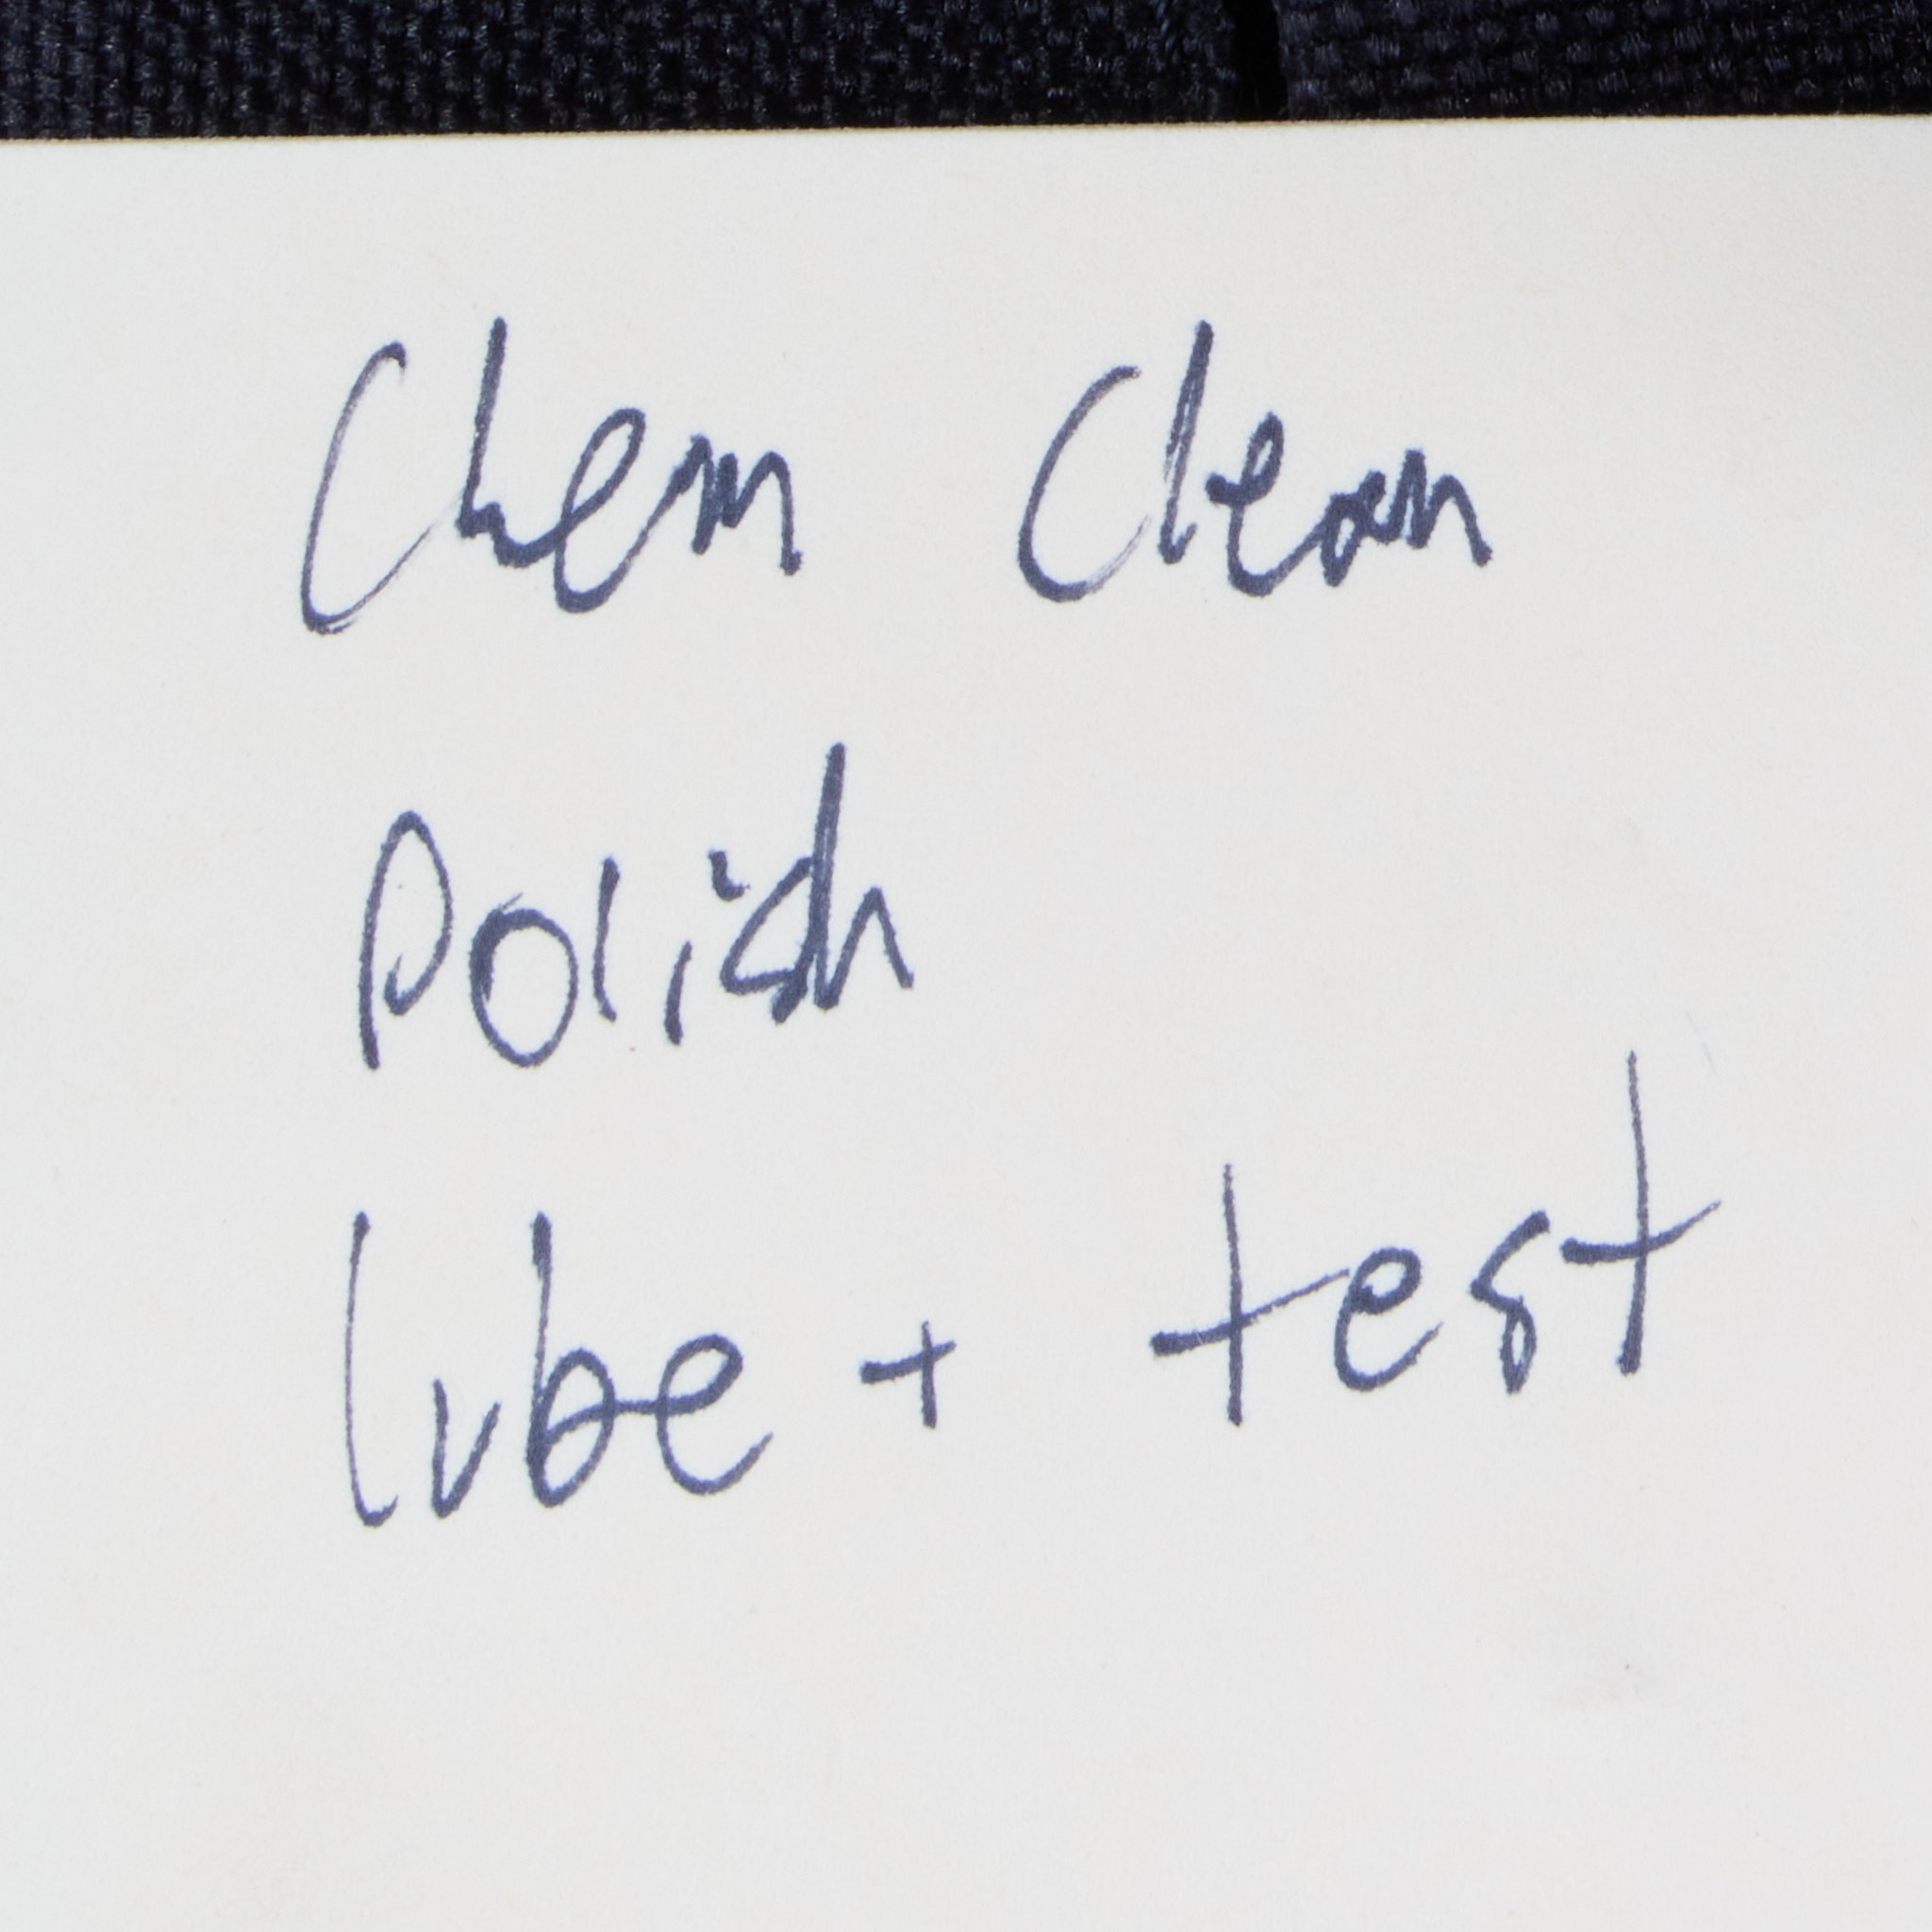 Chem Clean
Polish
lube + test